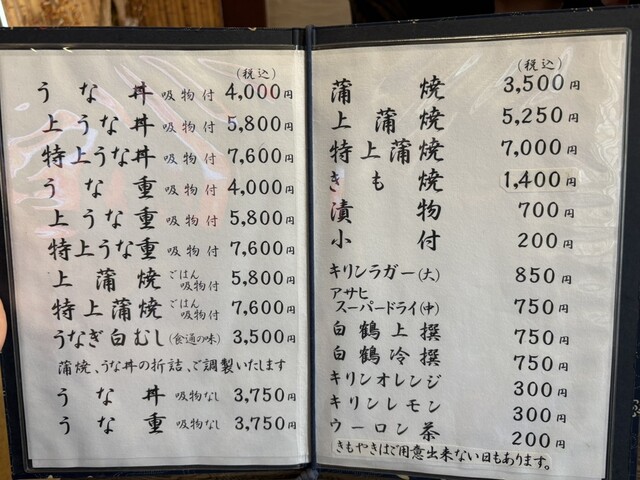 (税込)
うな丼 吸物付 4,000円
上うな丼 吸物付 5,800円
特上うな丼 吸物付 7,600円
うな重 吸物付 4,000円
上うな重 吸物付 5,800円
特上うな重 吸物付 7,600円
上蒲焼 ごはん吸物付 5,800円
特上蒲焼 ごはん吸物付 7,600円
うなぎ白むし(食通の味) 3,500円
蒲焼、うな丼の折詰、ご調製いたします
うな丼 吸物なし 3,750円
うな重 吸物なし 3,750円
(税込)
蒲焼 3,500円
上蒲焼 5,250円
特上蒲焼 7,000円
きも焼 1,400円
漬物 700円
小付 200円
キリンラガー(大) 850円
アサヒ
スーパードライ(中) 750円
白鶴上撰 750円
白鶴冷撰 750円
キリンオレンジ 300円
キリンレモン 300円
ウーロン茶 200円
きもやきはご用意出来ない日もあります。